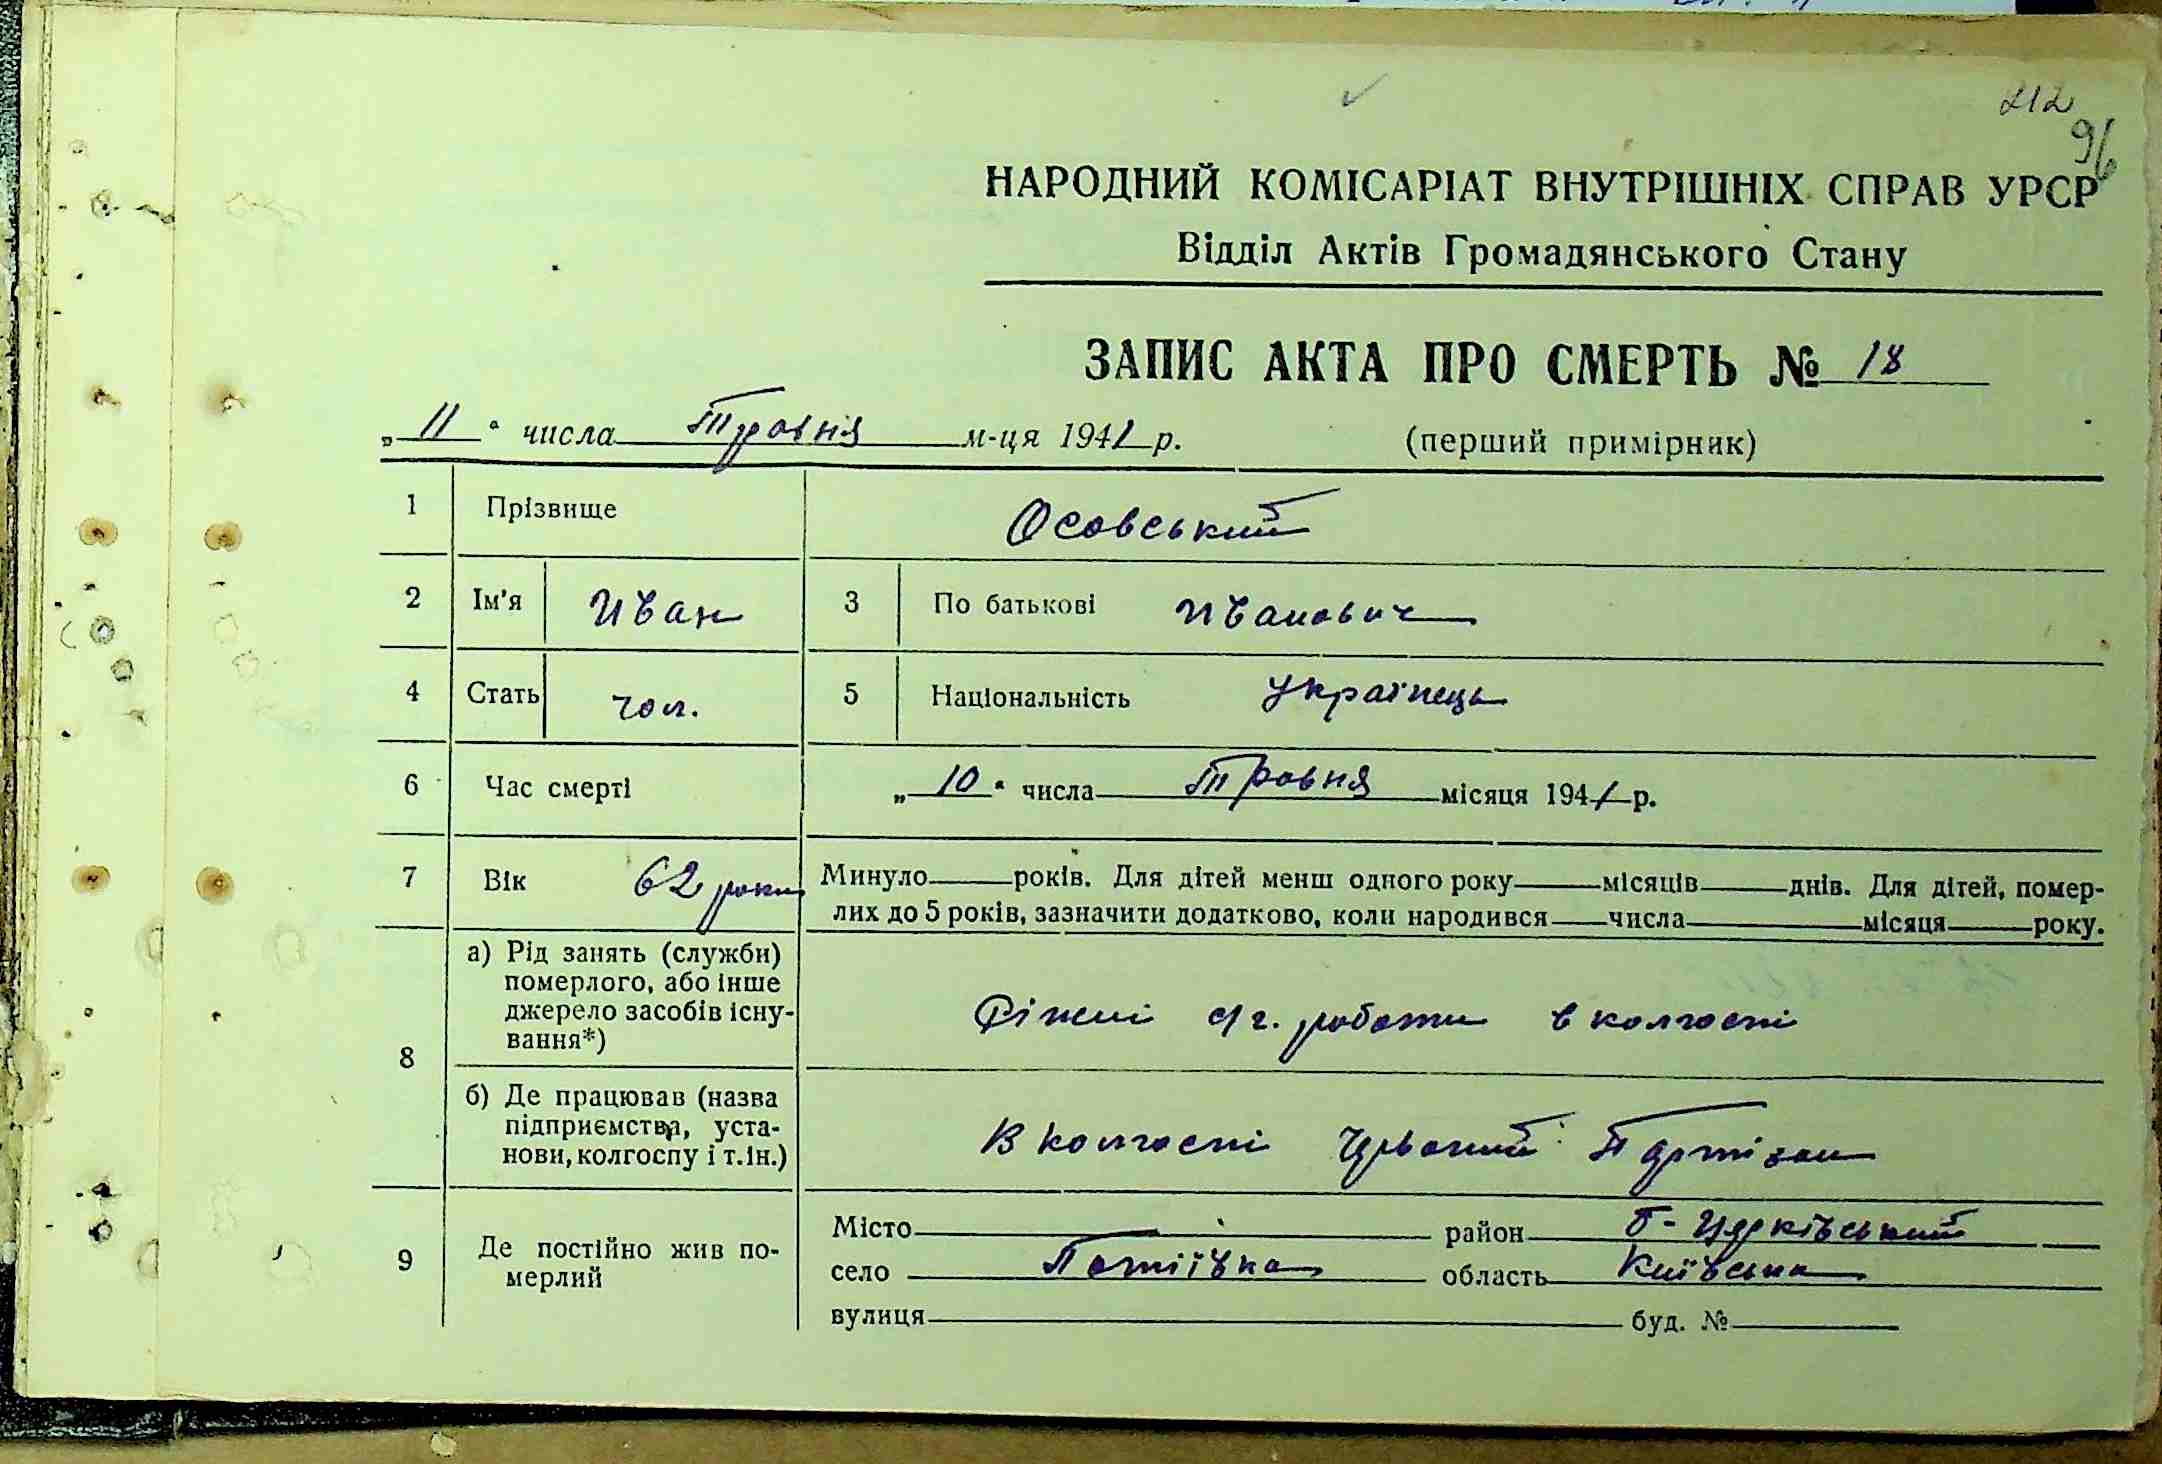 212
96
НАРОДНИЙ КОМІСАРІАТ ВНУТРІШНІХ СПРАВ УРСР
Відділ Актів Громадянського Стану
ЗАПИС АКТА ПРО СМЕРТЬ № 18
„ 11 “ числа Травня м-ця 1941 р. (перший примірник)
1 Прізвище Осовський
2 Ім'я Иван 3 По батькові Иванович
4 Стать чол. 5 Національність Українець
6 Час смерті „ 10 “ числа Травня місяця 1941 р.
7 Вік 62 роки Минуло років. Для дітей менш одного року місяців днів. Для дітей, помер-
лих до 5 років, зазначити додатково, коли народився числа місяця року.
8 а) Рід занять (служби)
померлого, або інше
джерело засобів існу-
вання*)
Ріжні с/г. роботи в колгоспі
б) Де працював (назва
підприємства, уста-
нови, колгоспу і т.ін.)
В колгоспі Червоний Партізан
9 Де постійно жив по-
мерлий
Місто район Б-Церківський
село Потіївка область Київська
вулиця буд. №